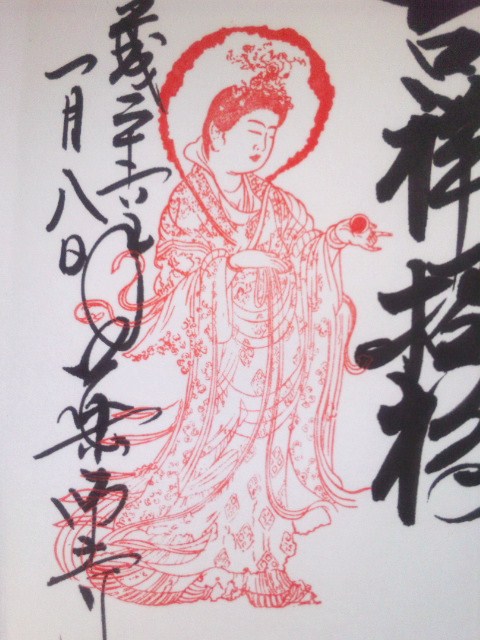 吉祥招福
平成二十六年
一月八日
薬師寺